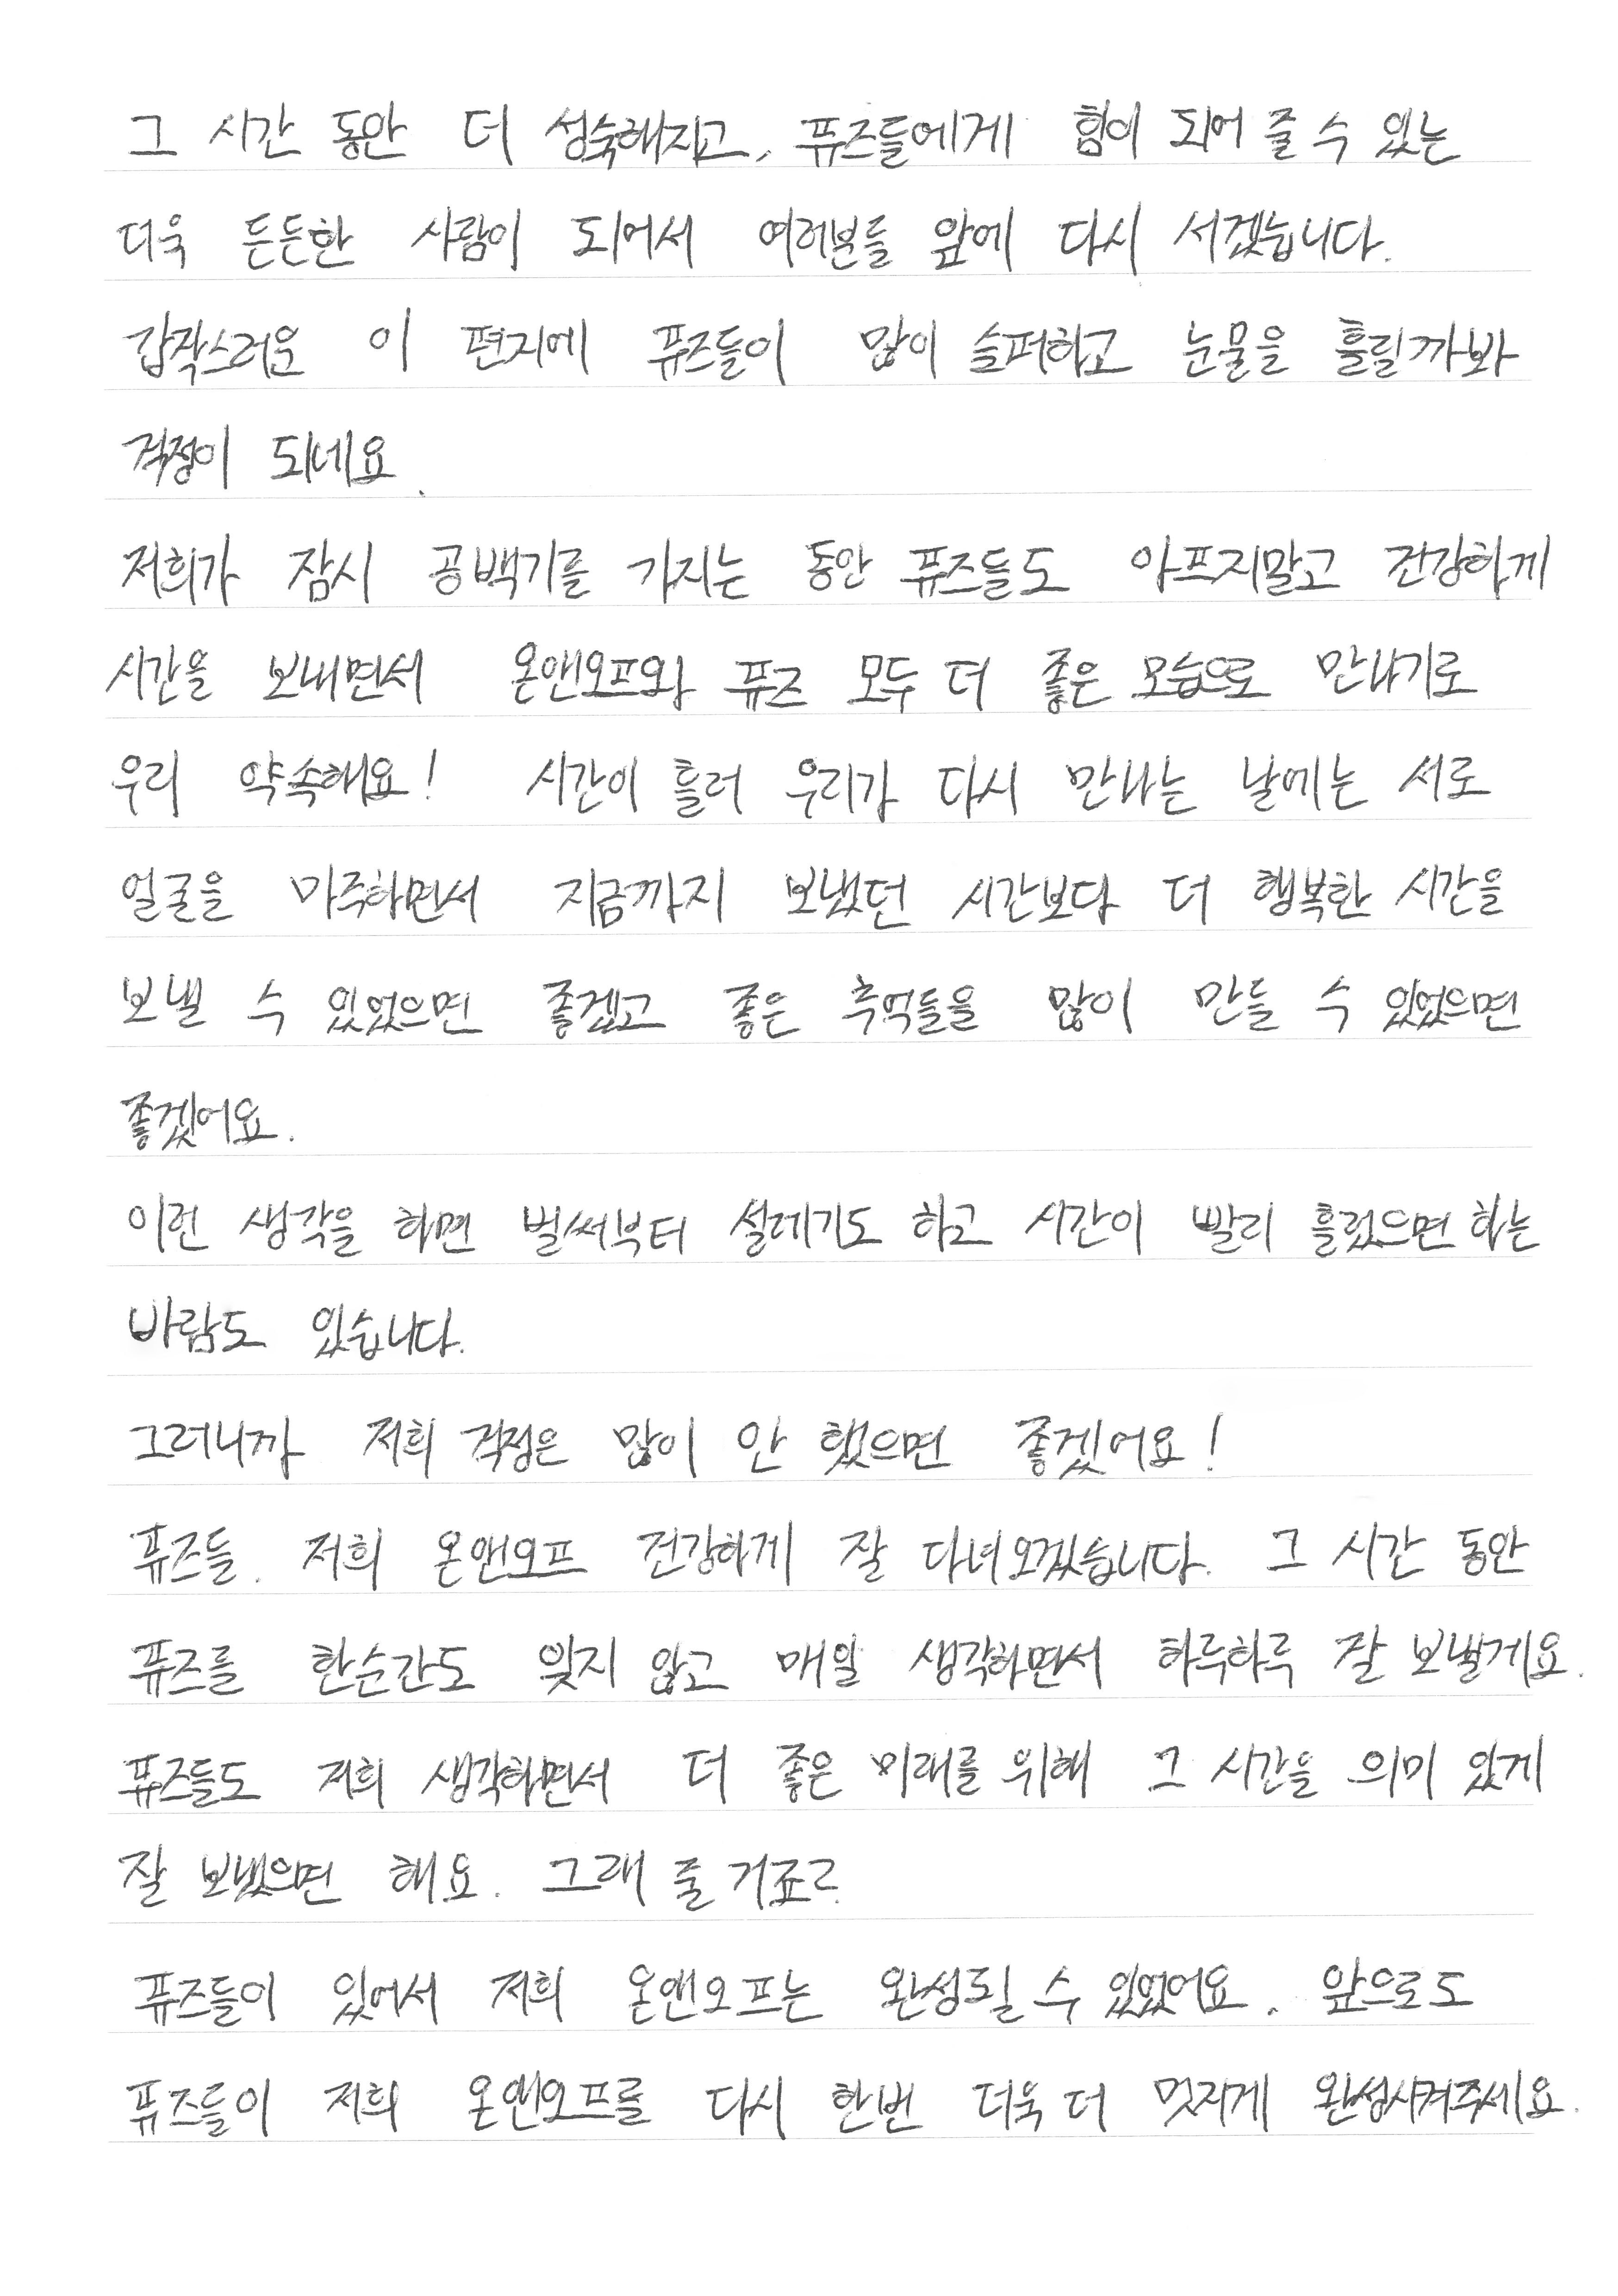 그 시간 동안 더 성숙해지고, 퓨즈들에게 힘이 되어 줄 수 있는
더욱 든든한 사람이 되어서 여러분들 앞에 다시 서겠습니다.
갑작스러운 이 편지에 퓨즈들이 많이 슬퍼하고 눈물을 흘릴까봐
걱정이 되네요.
저희가 잠시 공백기를 가지는 동안 퓨즈들도 아프지말고 건강하게
시간을 보내면서 온앤오프와 퓨즈 모두 더 좋은 모습으로 만나기로
우리 약속해요! 시간이 흘러 우리가 다시 만나는 날에는 서로
얼굴을 마주하면서 지금까지 보냈던 시간보다 더 행복한 시간을
보낼 수 있었으면 좋겠고 좋은 추억들을 많이 만들 수 있었으면
좋겠어요.
이런 생각을 하면 벌써부터 설레기도 하고 시간이 빨리 흘렀으면 하는
바람도 있습니다.
그러니까 저희 걱정은 많이 안 했으면 좋겠어요!
퓨즈들. 저희 온앤오프 건강하게 잘 다녀오겠습니다. 그 시간 동안
퓨즈를 한순간도 잊지 않고 매일 생각하면서 하루하루 잘 보낼게요.
퓨즈들도 저희 생각하면서 더 좋은 미래를 위해 그 시간을 의미 있게
잘 보냈으면 해요. 그래 줄 거죠?
퓨즈들이 있어서 저희 온앤오프는 완성될 수 있었어요. 앞으로도
퓨즈들이 저희 온앤오프를 다시 한번 더욱 더 멋지게 완성시켜주세요.